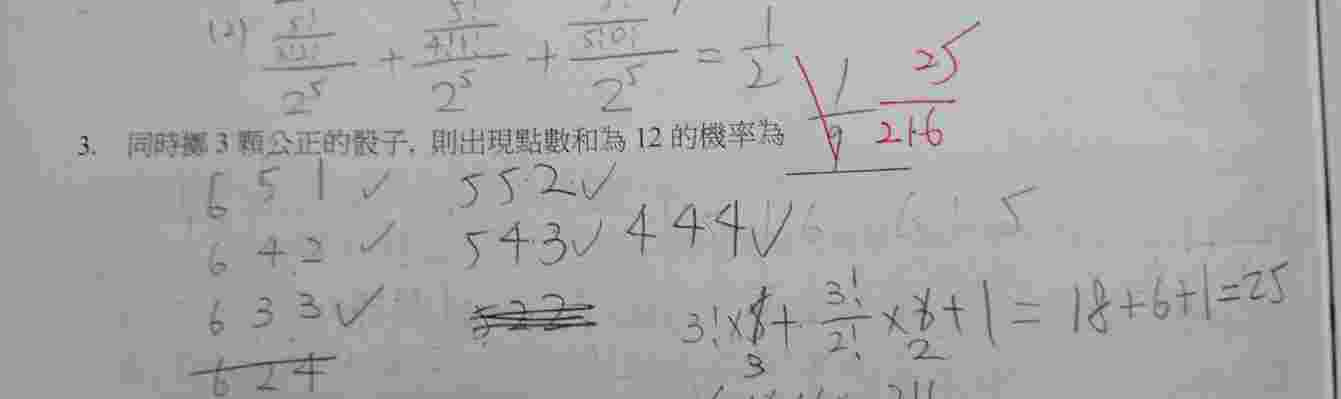 (2) 5!/3!2!/2^5 + 5!/4!1!/2^5 + 5!/5!0!/2^5 = 1/2
3. 同時擲 3 顆公正的骰子, 則出現點數和為 12 的機率為 1/9 25/216
6 5 1 ✓ 552 ✓
6 4 2 ✓ 543 ✓ 444 ✓ 5
6 3 3 ✓
3! × 3 + 3!/2! × 2 + 1 = 18+6+1=25
6 2 4